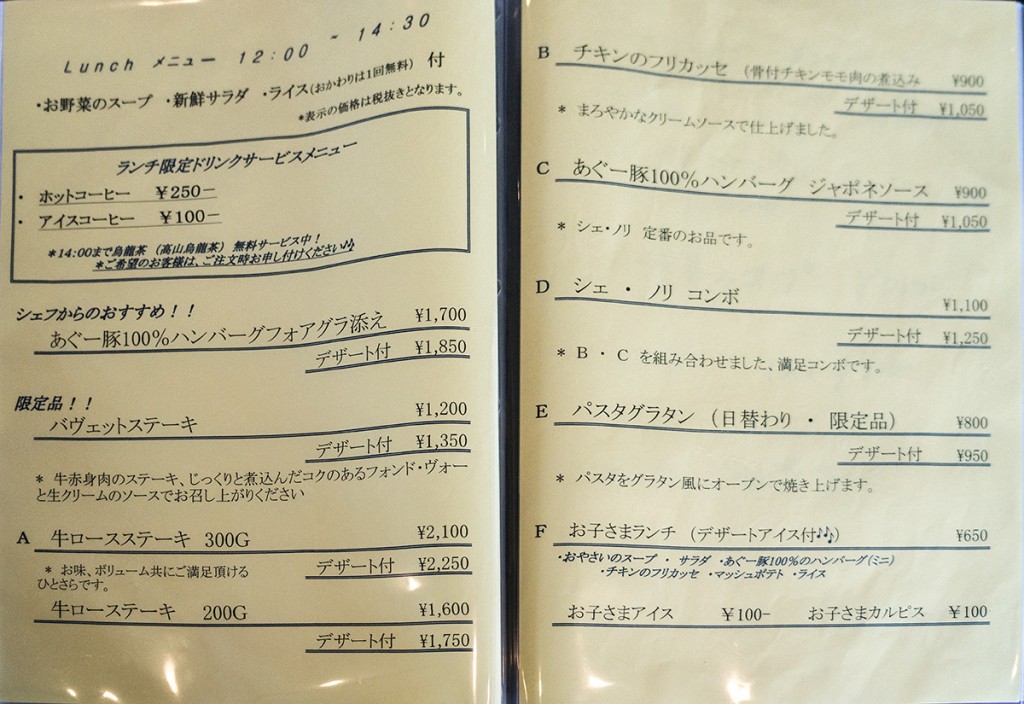 Lunch メニュー 12:00 ~ 14:30
・お野菜のスープ ・新鮮サラダ ・ライス(おかわりは1回無料) 付
*表示の価格は税抜きとなります。
ランチ限定ドリンクサービスメニュー
・ ホットコーヒー ¥250-
・ アイスコーヒー ¥100-
*14:00まで烏龍茶 (高山烏龍茶) 無料サービス中!
*ご希望のお客様は、ご注文時お申し付けください♪
シェフからのおすすめ!!
あぐー豚100%ハンバーグフォアグラ添え ¥1,700
デザート付 ¥1,850
限定品!!
バヴェットステーキ ¥1,200
デザート付 ¥1,350
* 牛赤身肉のステーキ、じっくりと煮込んだコクのあるフォンド・ヴォー
と生クリームのソースでお召し上がりください
A 牛ロースステーキ 300G ¥2,100
* お味、ボリューム共にご満足頂ける
ひとさらです。
デザート付 ¥2,250
牛ローステーキ 200G ¥1,600
デザート付 ¥1,750
B チキンのフリカッセ (骨付チキンモモ肉の煮込み ¥900
デザート付 ¥1,050
* まろやかなクリームソースで仕上げました。
C あぐー豚100%ハンバーグ ジャポネソース ¥900
デザート付 ¥1,050
* シェ・ノリ 定番のお品です。
D シェ ・ ノリ コンボ ¥1,100
デザート付 ¥1,250
* B ・ C を組み合わせました、満足コンボです。
E パスタグラタン (日替わり ・ 限定品) ¥800
デザート付 ¥950
* パスタをグラタン風にオーブンで焼き上げます。
F お子さまランチ (デザートアイス付♪♪) ¥650
・おやさいのスープ ・ サラダ ・あぐー豚100%のハンバーグ(ミニ)
・チキンのフリカッセ ・マッシュポテト ・ライス
お子さまアイス ¥100- お子さまカルピス ¥100